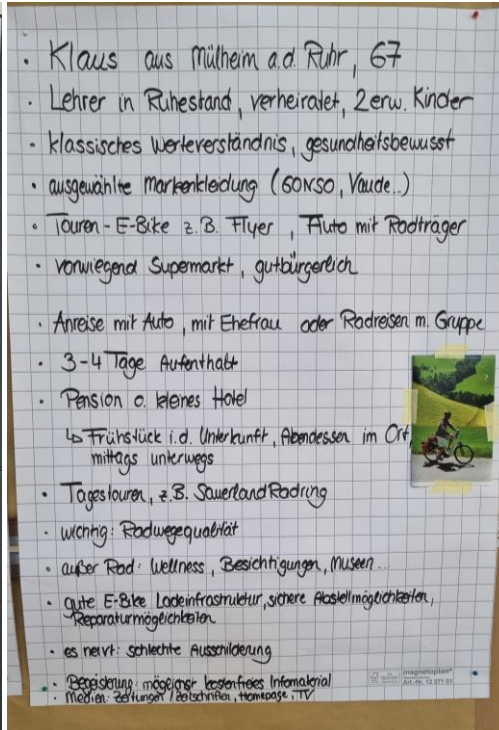 · Klaus aus Mülheim a.d. Ruhr, 67
· Lehrer in Ruhestand, verheiratet, 2 erw. Kinder
· klassisches Werteverständnis, gesundheitsbewusst
· ausgewählte Markenkleidung (GONSO, Vaude..)
· Touren-E-Bike z.B. Flyer, Auto mit Radträger
· vorwiegend Supermarkt, gutbürgerlich
· Anreise mit Auto, mit Ehefrau oder Radreisen m. Gruppe
· 3-4 Tage Aufenthalt
· Pension o. kleines Hotel
↳ Frühstück i.d. Unterkunft, Abendessen im Ort,
mittags unterwegs
· Tagestouren, z.B. SauerlandRadring
· wichtig: Radwegequalität
· außer Rad: Wellness, Besichtigungen, Museen..
· gute E-Bike Ladeinfrastruktur, sichere Abstellmöglichkeiten,
Reparaturmöglichkeiten
· es nervt: schlechte Ausschilderung
· Begeisterung: möglichst kostenfreies Infomaterial
· Medien: Zeitungen / Zeitschriften, Homepage, TV
magnetoplan®
Art.-Nr. 12 271 01